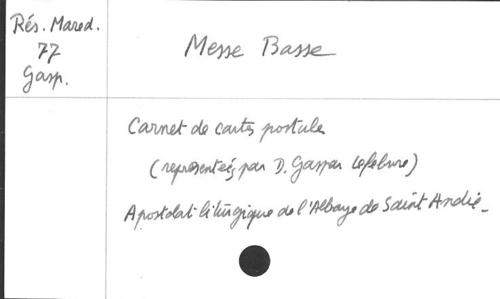 Rés. Mared.
77
Gasp.
Messe Basse
Carnet de cartes postales
(representées par D. Gaspar Lefebvre)
Apostolat liturgique de l'Abbaye de Saint André_